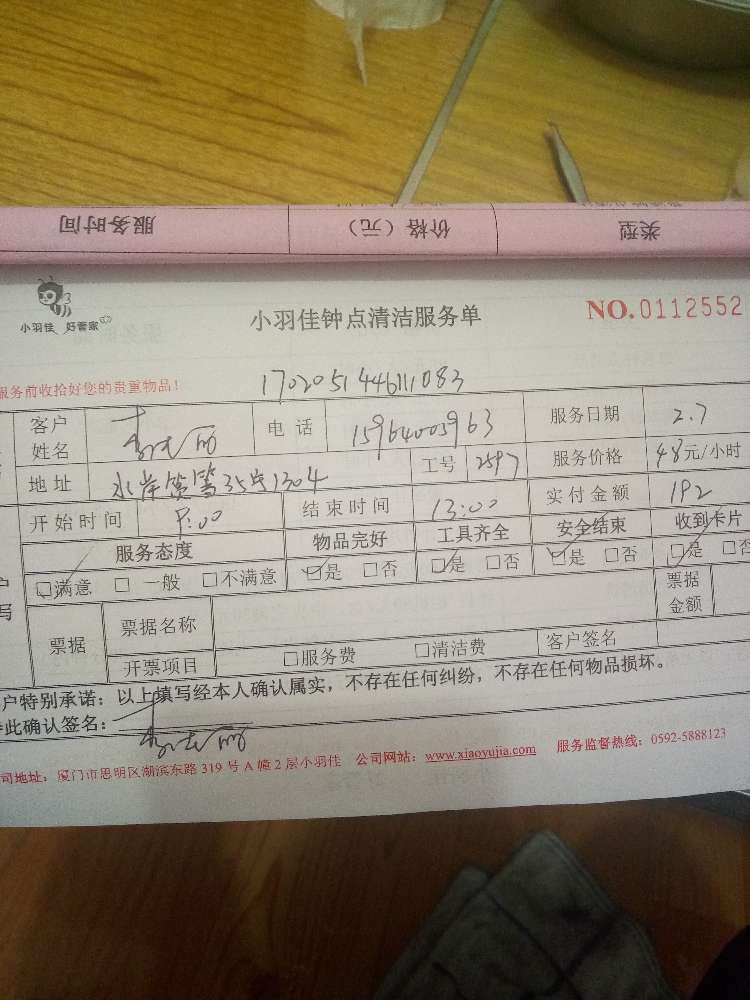 服务时间 价格（元） 类型
小羽佳 好管家
小羽佳钟点清洁服务单 NO.0112552
服务前收拾好您的贵重物品！
1702051446111083
客户姓名 电话 15964005963 服务日期 2.7
地址 35号1304 工号 2597 服务价格 48元/小时
开始时间 9:00 结束时间 13:00 实付金额 192
服务态度 物品完好 工具齐全 安全结束 收到卡片
满意 一般 不满意 是 否 是 否 是 否 是 否
票据 票据名称 票据金额
开票项目 服务费 清洁费 客户签名
户特别承诺：以上填写经本人确认属实，不存在任何纠纷，不存在任何物品损坏。
此确认签名：
司地址：厦门市思明区湖滨东路319号A幢2层小羽佳 公司网站：www.xiaoyujia.com 服务监督热线：0592-5888123